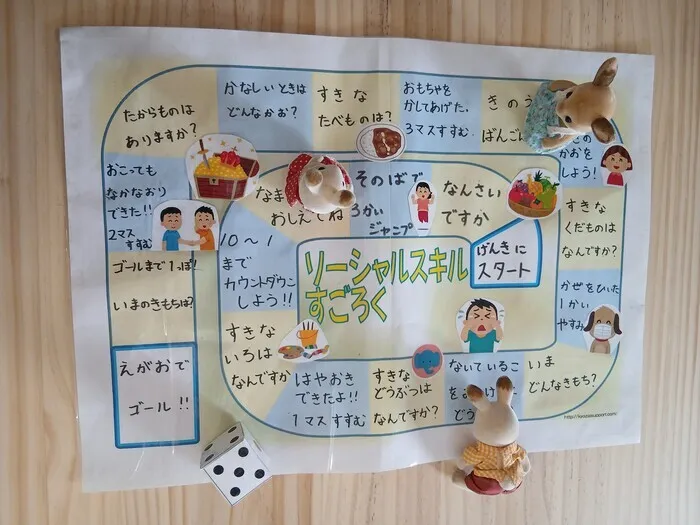 ソーシャルスキル
すごろく
げんきに
スタート
なんさい
ですか
そのばで
3かい
ジャンプ
なま
おしえてね
10～1
まで
カウントダウン
しよう!!
すきな
いろは
なんですか
はやおき
できたよ!!
1マスすすむ
すきな
どうぶつは
なんですか?
ないているこ
いま
どんなきもち?
かぜをひいた
1かい
やすみ
すきな
くだものは
なんですか?
かおを
しよう!
きのう
ばんご
おもちゃを
かしてあげた。
3マスすすむ
すきな
たべものは?
かなしいときは
どんなかお?
たからものは
ありますか?
おこっても
なかなおり
できた!!
2マス
すすむ
ゴールまで1っぽ!
いまのきもちは?
えがおで
ゴール!!